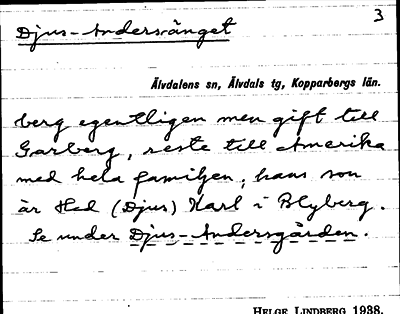 3
Djus-Andersänget
Älvdalens sn, Älvdals tg, Kopparbergs län.
berg egentligen men gift till
Garberg, reste till Amerika
med hela familjen, hans son
är Hed (Djus) Karl i Blyberg.
Se under Djus-Andersgården.
HELGE LINDBERG 1938.